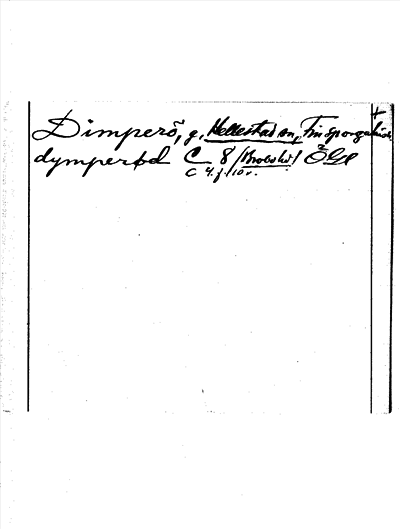 Dimperö, g, Hellestad sn, Finspongaläns
dymperöd C 8 /Broocks/ ÖGL
C 4. f. 10 v.